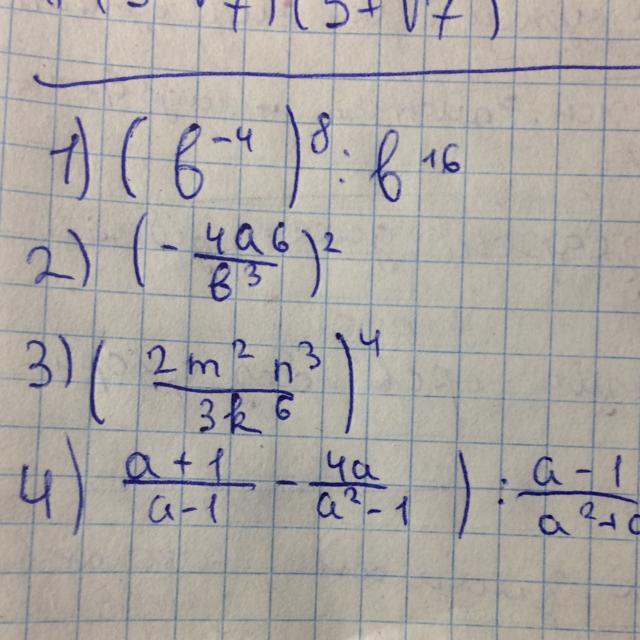 (5 - √7)(5 + √7)
1) (в⁻⁴)⁸ : в¹⁶
2) (- 4a⁶ / в³)²
3) (2m² n³ / 3k⁶)⁴
4) a + 1 / a - 1 - 4a / a² - 1 ) : a - 1 / a² +